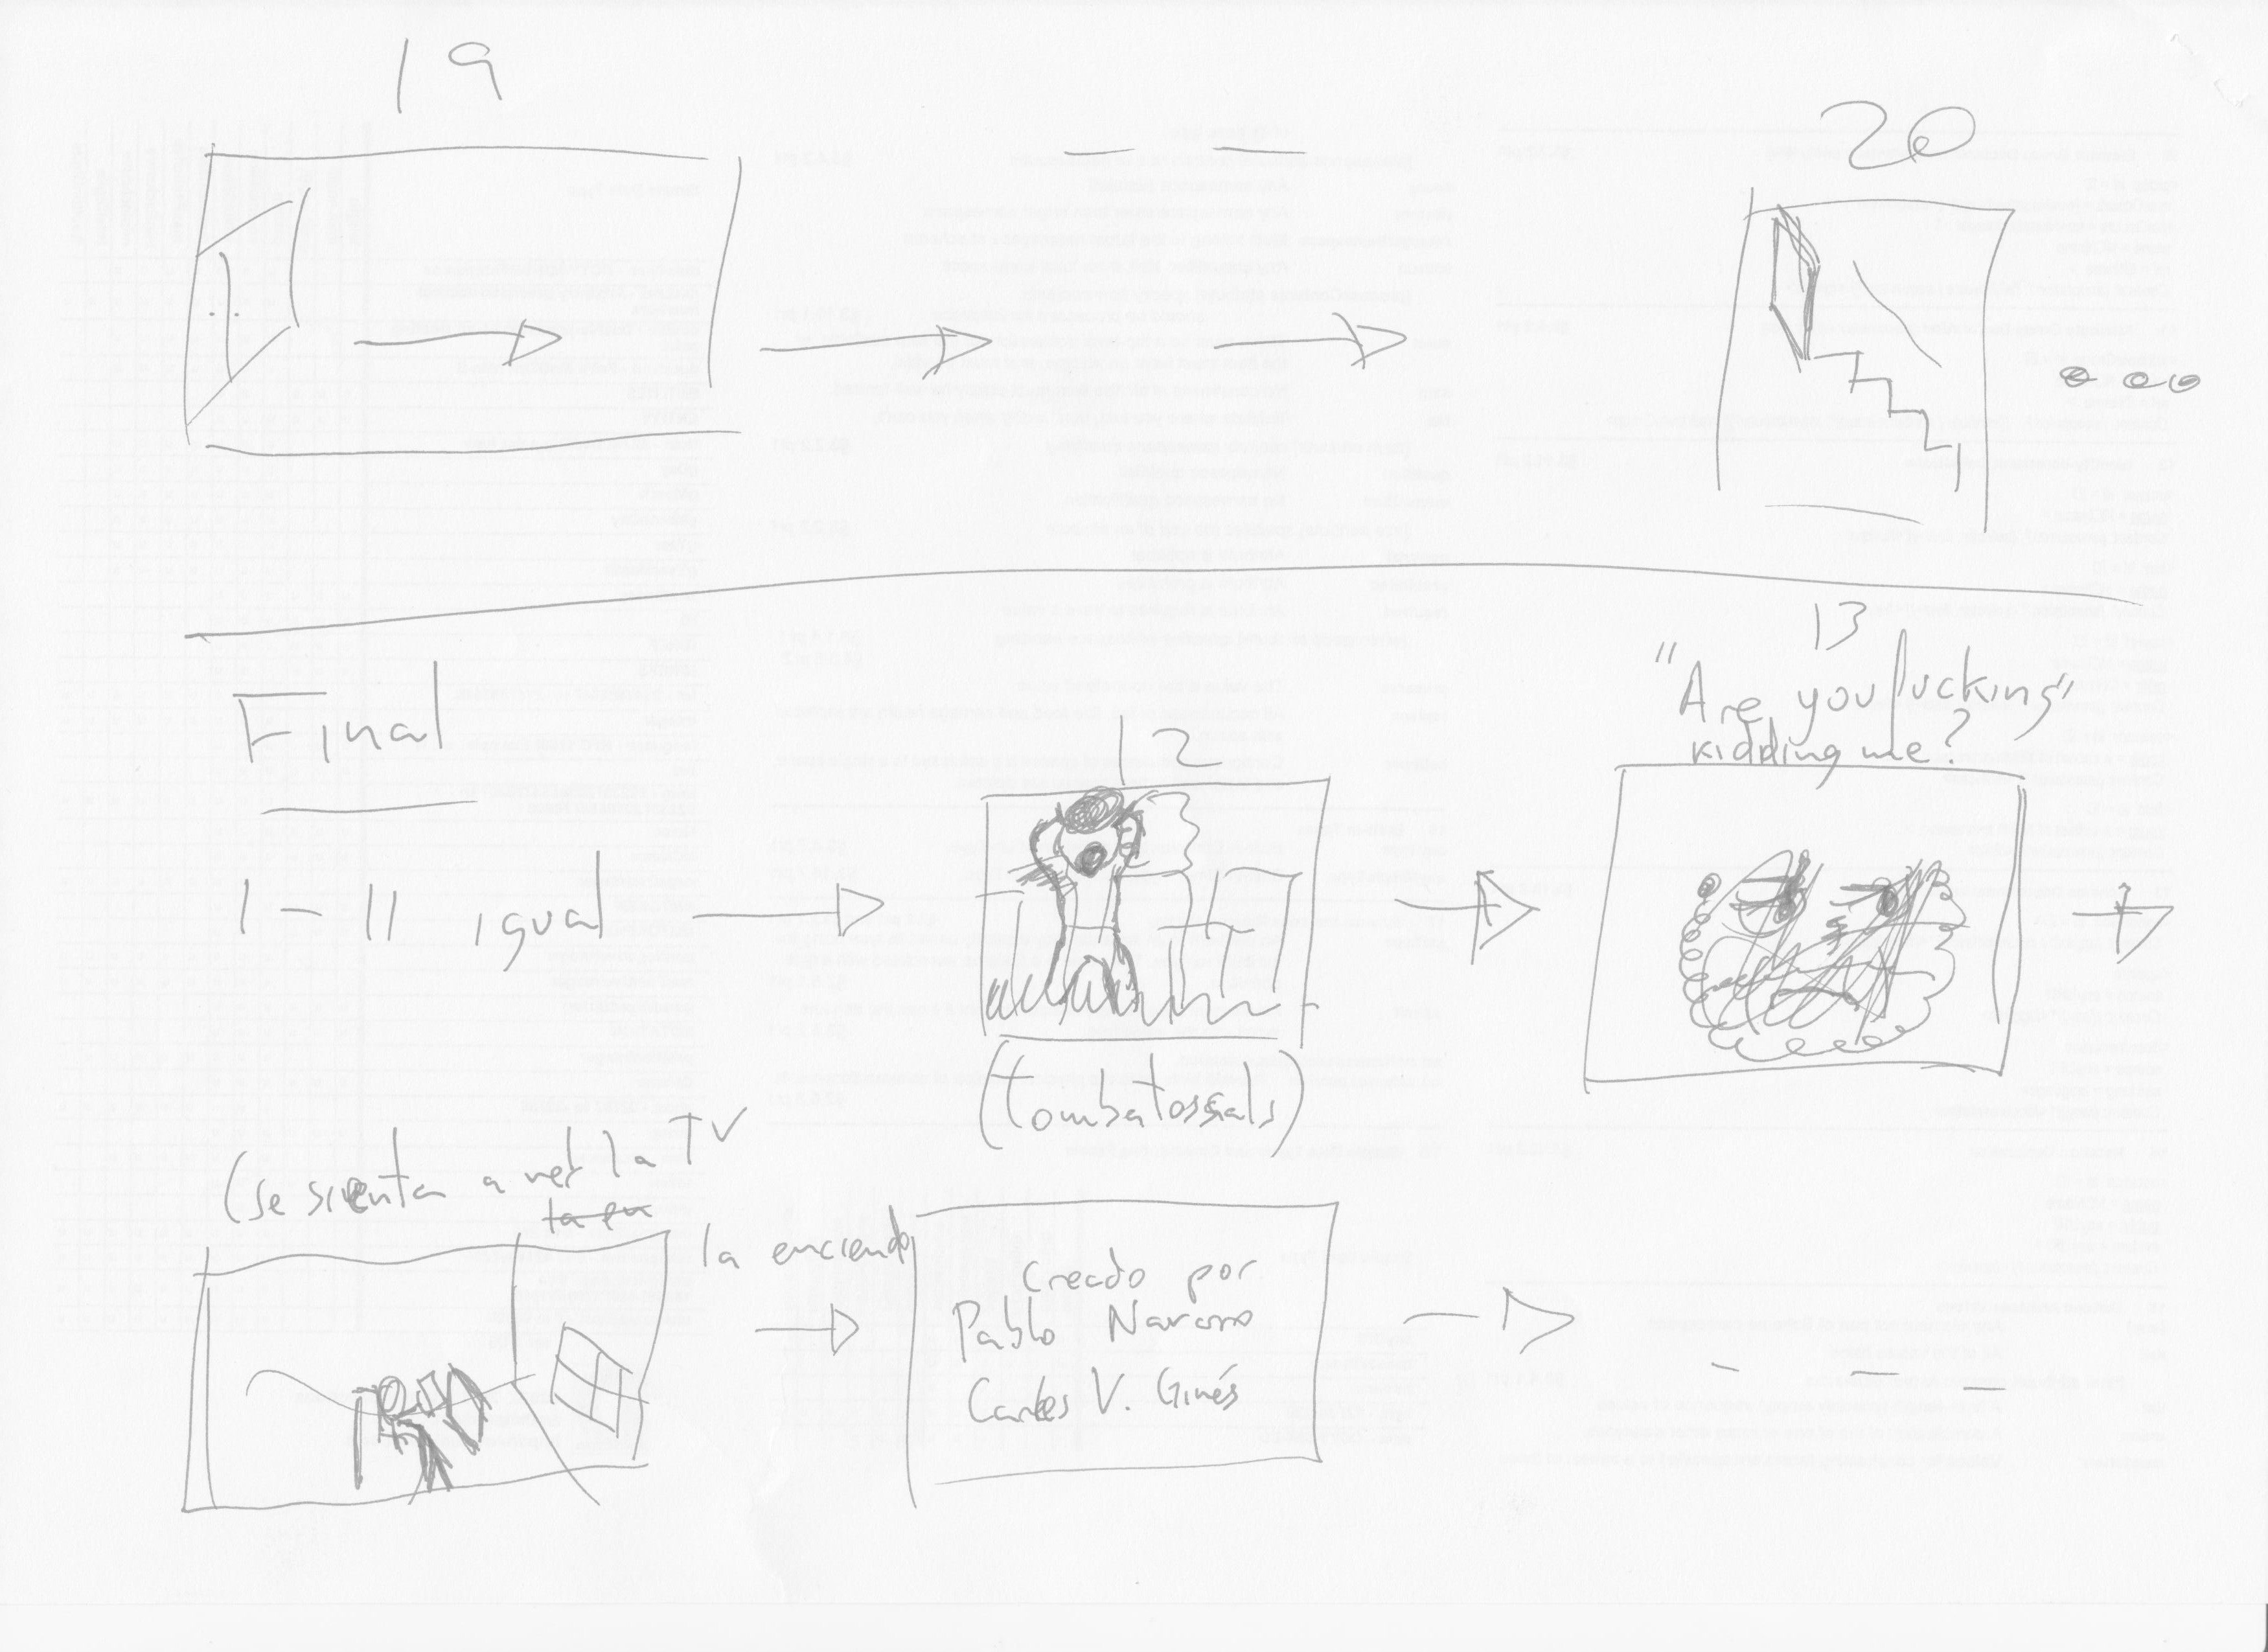 19
20
Final
1-11 igual
12
(Tombatossals)
13
"Are you fucking"
kidding me?
(se sienta a ver la TV
la enciende
Creado por
Pablo Navarro
Carles V. Ginés